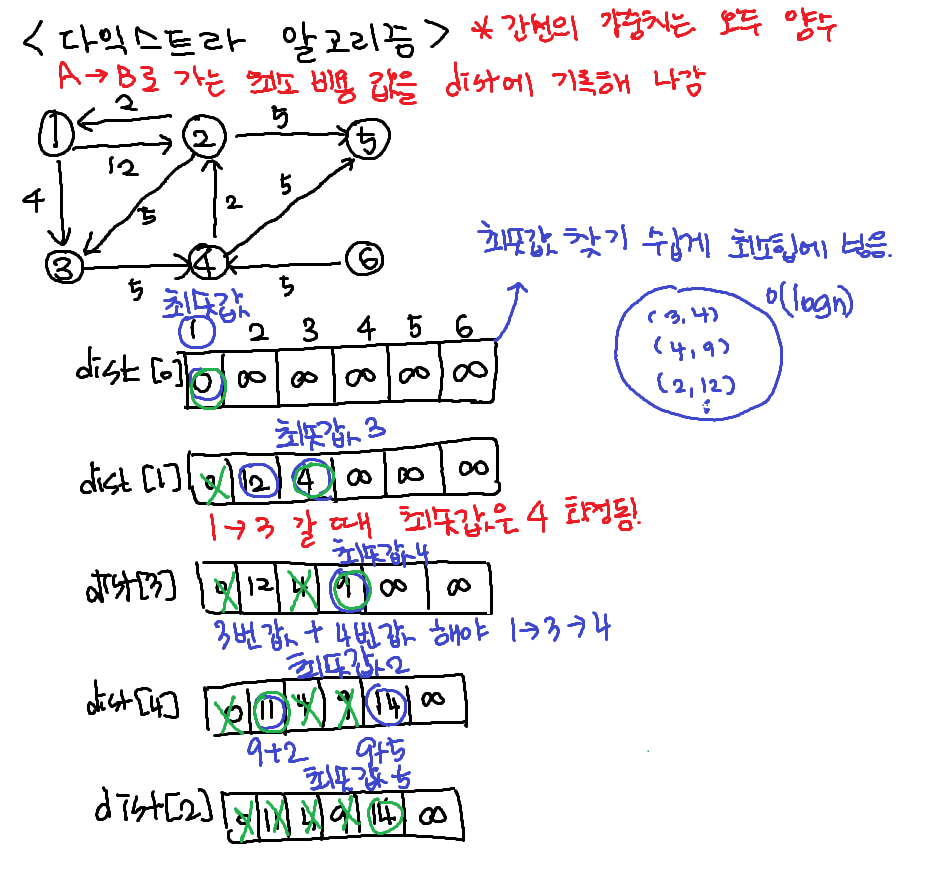 <다익스트라 알고리즘> * 간선의 가중치는 모두 양수
A→B로 가는 최소 비용 값을 dist에 기록해 나감
2
1 2 5 5
12
4 5 2 5
3 4 6
5 5
최솟값 찾기 쉽게 최소힙에 넣음.
O(logn)
(3,4)
(4,9)
(2,12)
⋮
최솟값
1 2 3 4 5 6
dist [0] 0 ∞ ∞ ∞ ∞ ∞
최솟값 3
dist [1] 0 12 4 ∞ ∞ ∞
1→3 갈 때 최솟값은 4 확정됨!
최솟값 4
dist[3] 0 12 4 9 ∞ ∞
3번값 + 4번값 해야 1→3→4
최솟값 2
dist[4] 0 11 4 9 14 ∞
9+2 9+5
최솟값 5
dist[2] 0 11 4 9 14 ∞